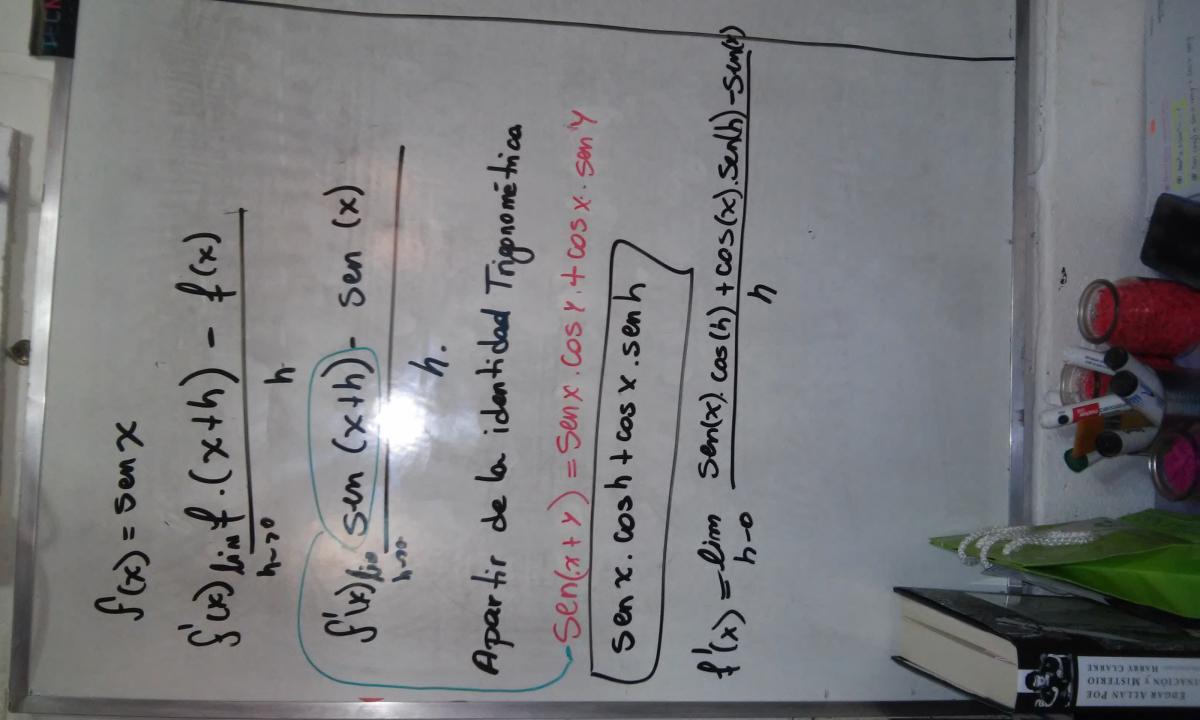 f(x) = sen x
f'(x) lin f.(x+h) - f(x)
h→0 h
f'(x) lin sen (x+h) - sen (x)
h→0 h.
Apartir de la identidad Trigonométrica
Sen(x+y) = Sen x . cos y + cos x . sen y
sen x . cos h + cos x . sen h
f'(x) = lim sen(x). cos(h) + cos(x). sen(h) - sen(x)
h→0 h
EDGAR ALLAN POE
HARRY CLARKE